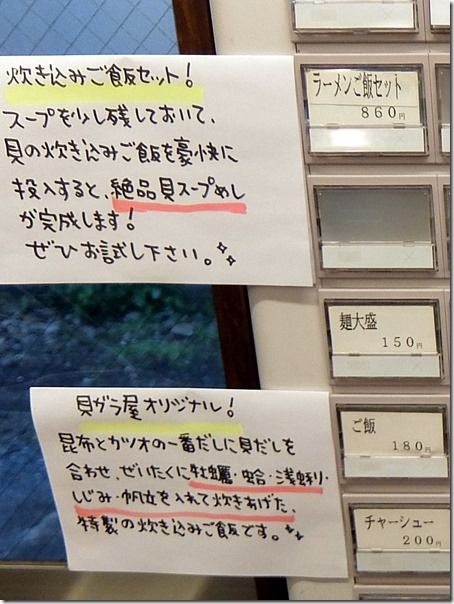 炊き込みご飯セット!
スープを少し残しておいて、
貝の炊き込みご飯を豪快に
投入すると、絶品貝スープめし
が完成します!
ぜひお試し下さい。
貝ガラ屋オリジナル!
昆布とカツオの一番だしに貝だしを
合わせ、ぜいたくに牡蠣・蛤・浅蜊・
しじみ・帆立を入れて炊きあげた、
特製の炊き込みご飯です。
ラーメンご飯セット
860円
麺大盛
150円
ご飯
180円
チャーシュー
200円